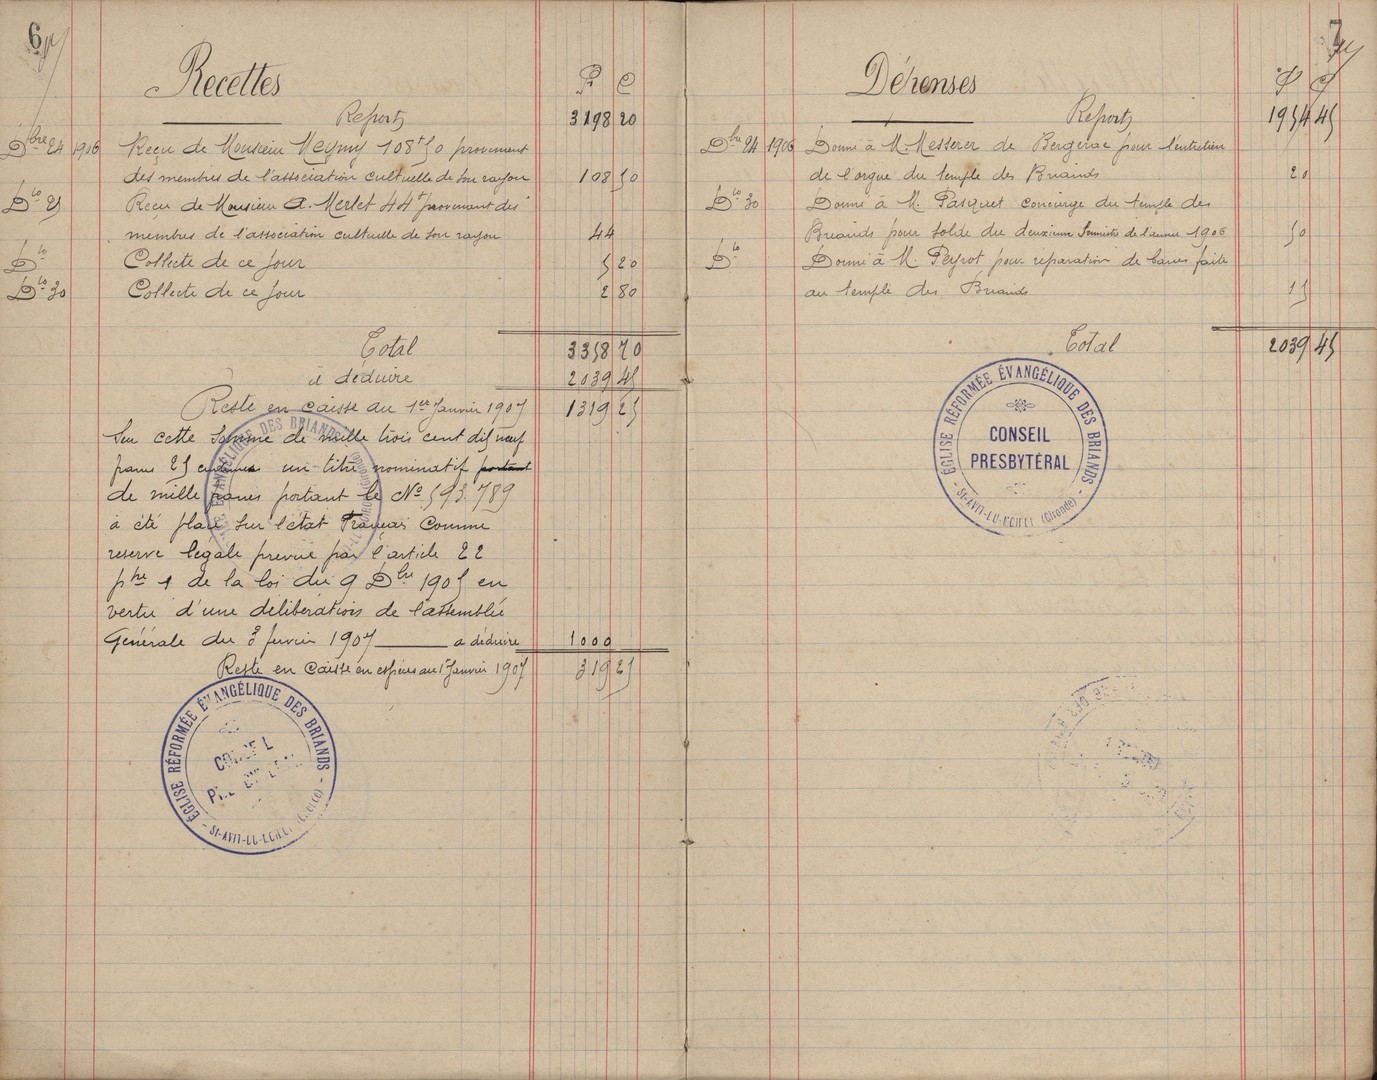 6
Recettes F C
Report 3198 20
Dbre 24 1906 Reçu de Monsieur Meymy 108f50 provenant
des membres de l'association cultuelle de son rayon 108 50
Dto 25 Recu de Monsieur A. Merlet 44f provenant des
membres de l'association cultuelle de son rayon 44
Dto Collecte de ce Jour 5 20
Dto 30 Collecte de ce Jour 2 80
Total 3358 70
à deduire 2039 45
Reste en caisse au 1er Janvier 1907 1319 25
Sur cette Somme de mille trois cent dix neuf
francs 25 centimes un titre nominatif portant
de mille francs portant le No 593.789
à été placé sur l'état Français Comme
reserve legale prevue par l'article 22
phre 1 de la loi du 9 Dbre 1905 en
vertu d'une déliberations de l'assemblée
Générale du 3 fevrier 1907 a déduire 1000
Reste en Caisse en espèces au 1er Janvier 1907 319 25
ÉGLISE RÉFORMÉE ÉVANGÉLIQUE DES BRIANDS
CONSEIL
PRESBYTÉRAL
7
Dépenses F C
Report 1954 45
Dbre 24 1906 Donné à M. Messerer de Bergerac pour l'entretien
de l'orgue du temple des Briands 20
Dto 30 Donné à M. Pasquet concierge du temple des
Briands pour solde du deuxieme Semestre de l'année 1906 50
Dto Donné à M. Peyrot pour reparation de bancs faite
au temple des Briands 15
Total 2039 45
ÉGLISE RÉFORMÉE ÉVANGÉLIQUE DES BRIANDS
CONSEIL
PRESBYTÉRAL
(Gironde)